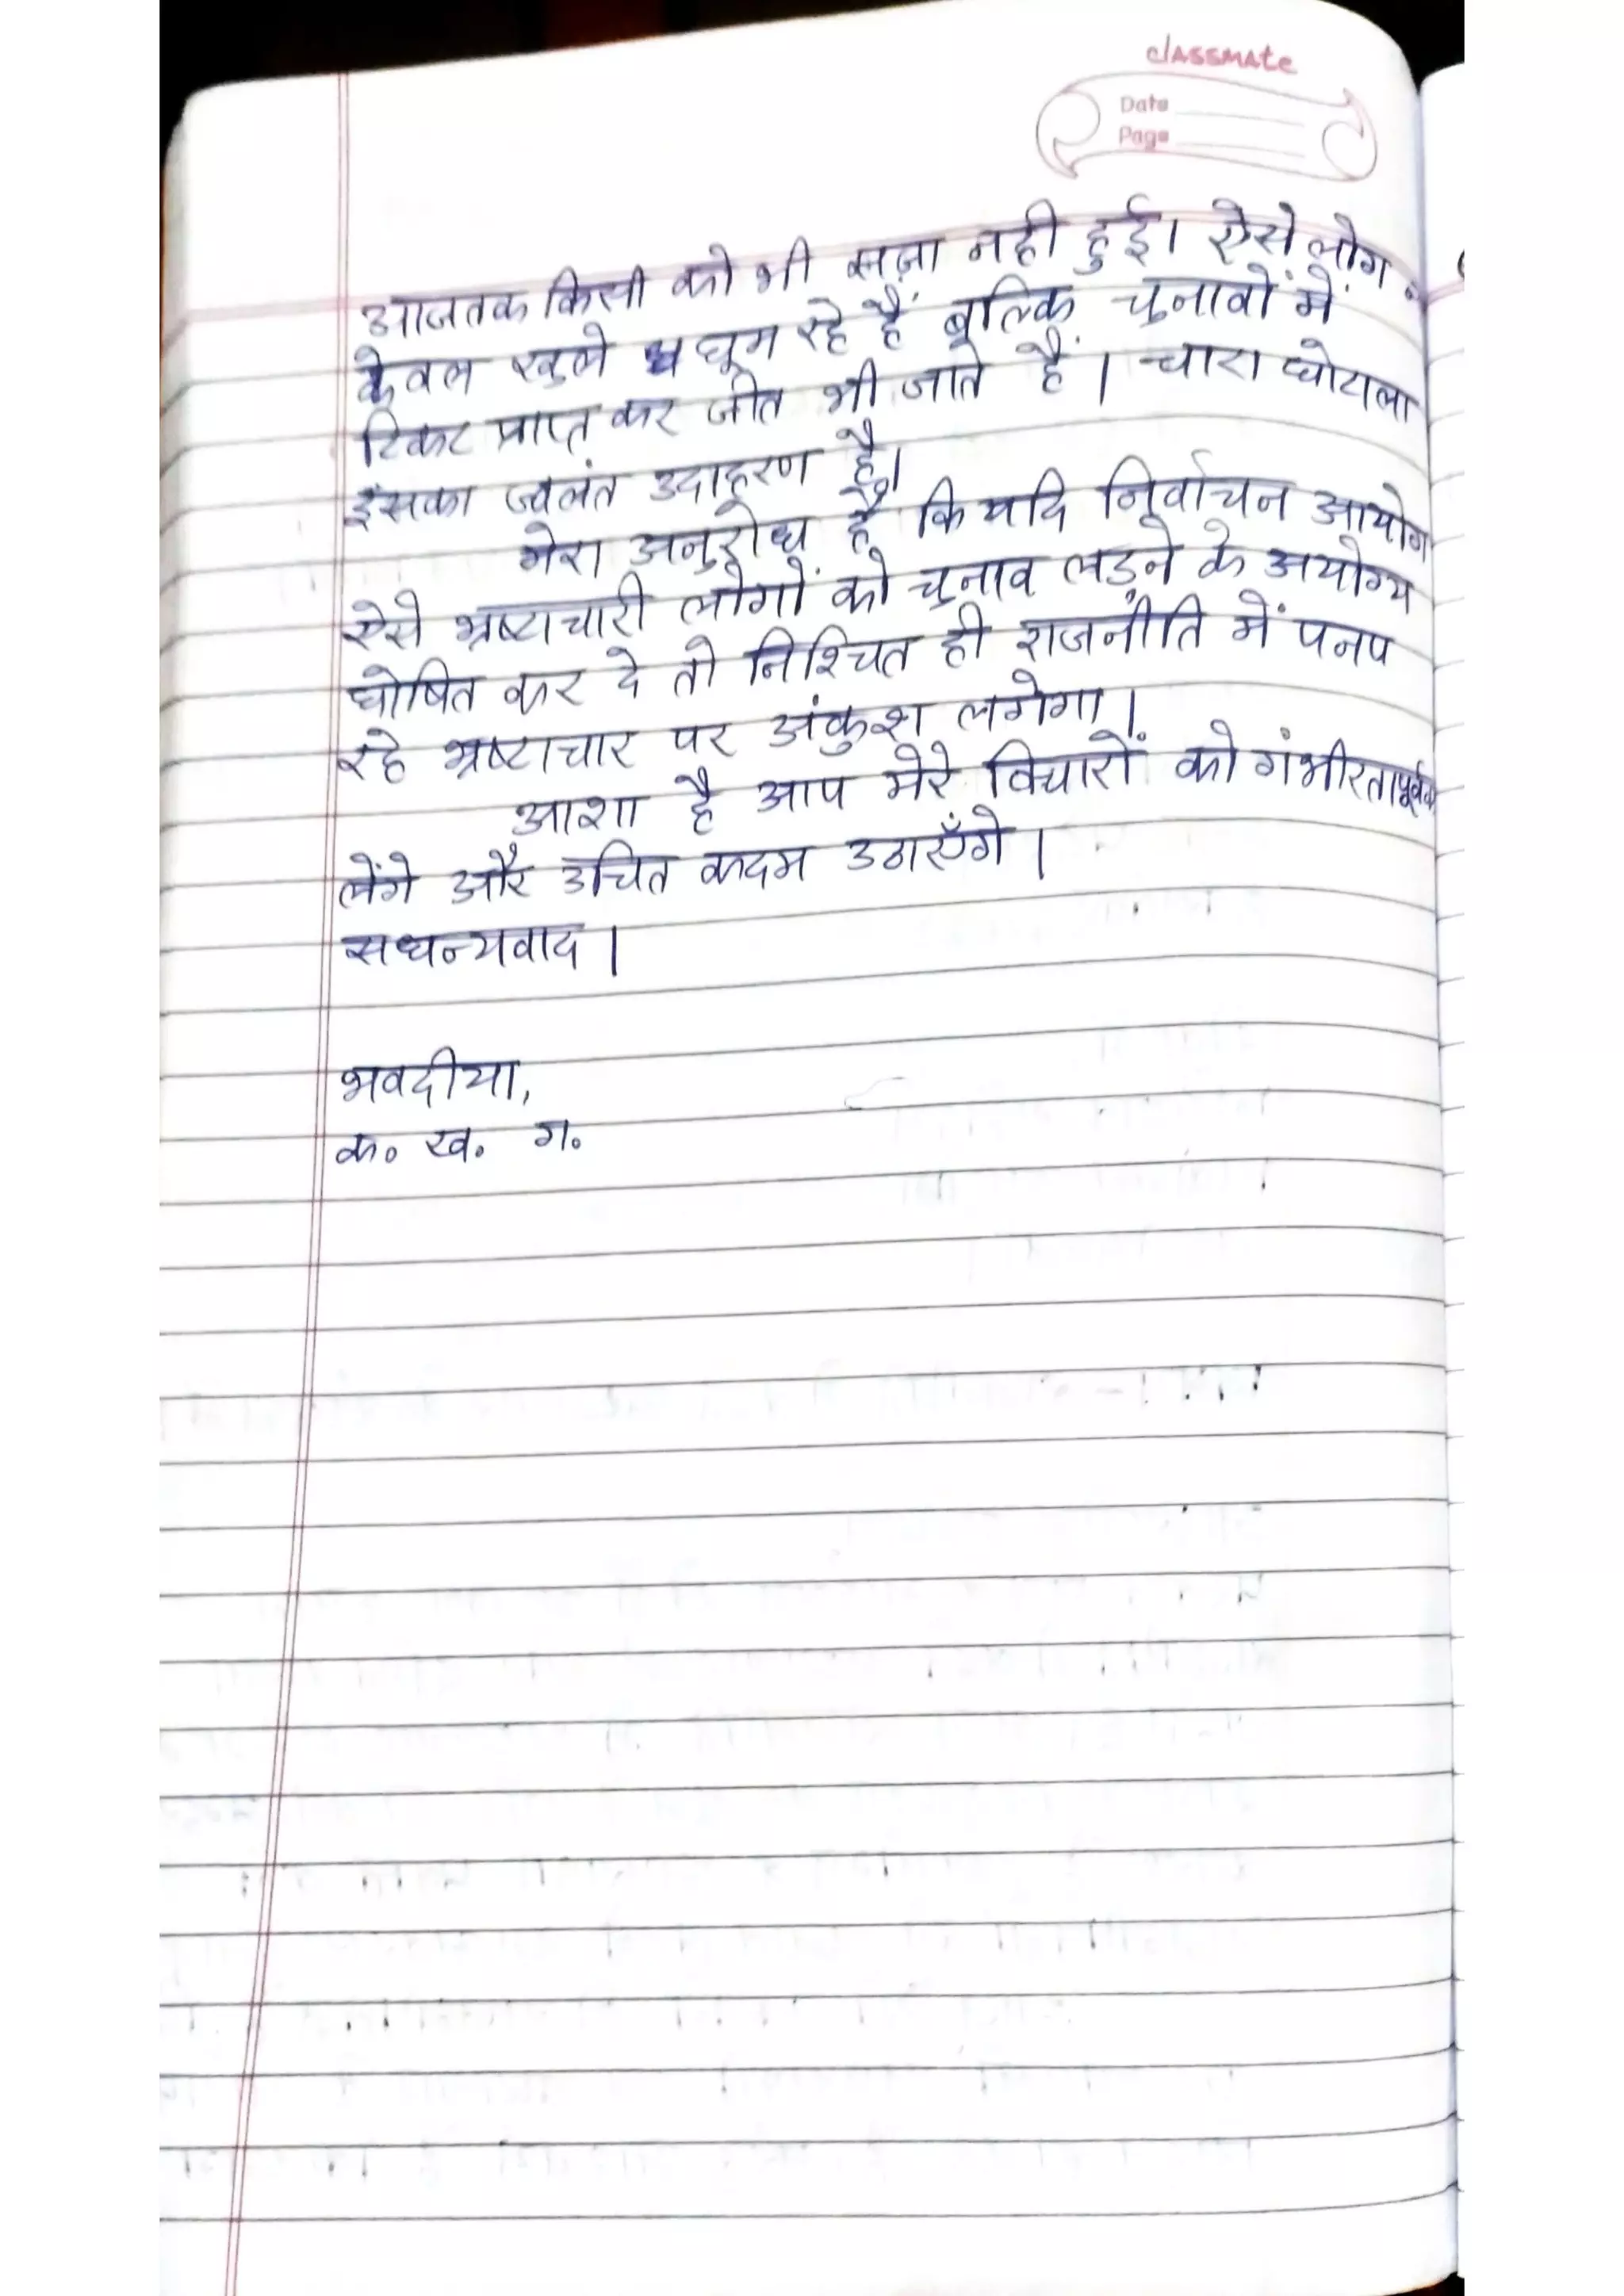 classmate
Date
Page
आजतक किसी को भी सज़ा नही हुई। ऐसे लोग
केवल खुले घूम रहे हैं बल्कि चुनावों में
टिकट प्राप्त कर जीत भी जाते हैं। चारा घोटाला
इसका ज्वलंत उदाहरण है।
मेरा अनुरोध है कि यदि निर्वाचन आयोग
ऐसे भ्रष्टाचारी लोगों को चुनाव लड़ने के अयोग्य
घोषित कर दे तो निश्चित ही राजनीति में पनप
रहे भ्रष्टाचार पर अंकुश लगेगा।
आशा है आप मेरे विचारों को गंभीरतापूर्वक
लेंगे और उचित कदम उठाएँगे।
सधन्यवाद।
भवदीया,
क० ख० ग०